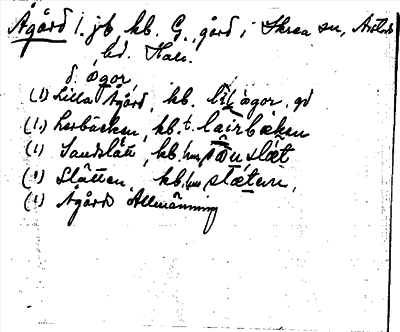 Ågård 1. jb, kb. G. gård i Skrea sn, Årstads
hd. Hall.
d. ågor,
(1) Lilla Ågård, kb. lil ågor, gd
(1) Lerbäcken, kb. t. lairbækən
(1) Sandslätt, kb. hm
(1) Slätten, kb. hm slætən,
(1) Ågårds Allmänning